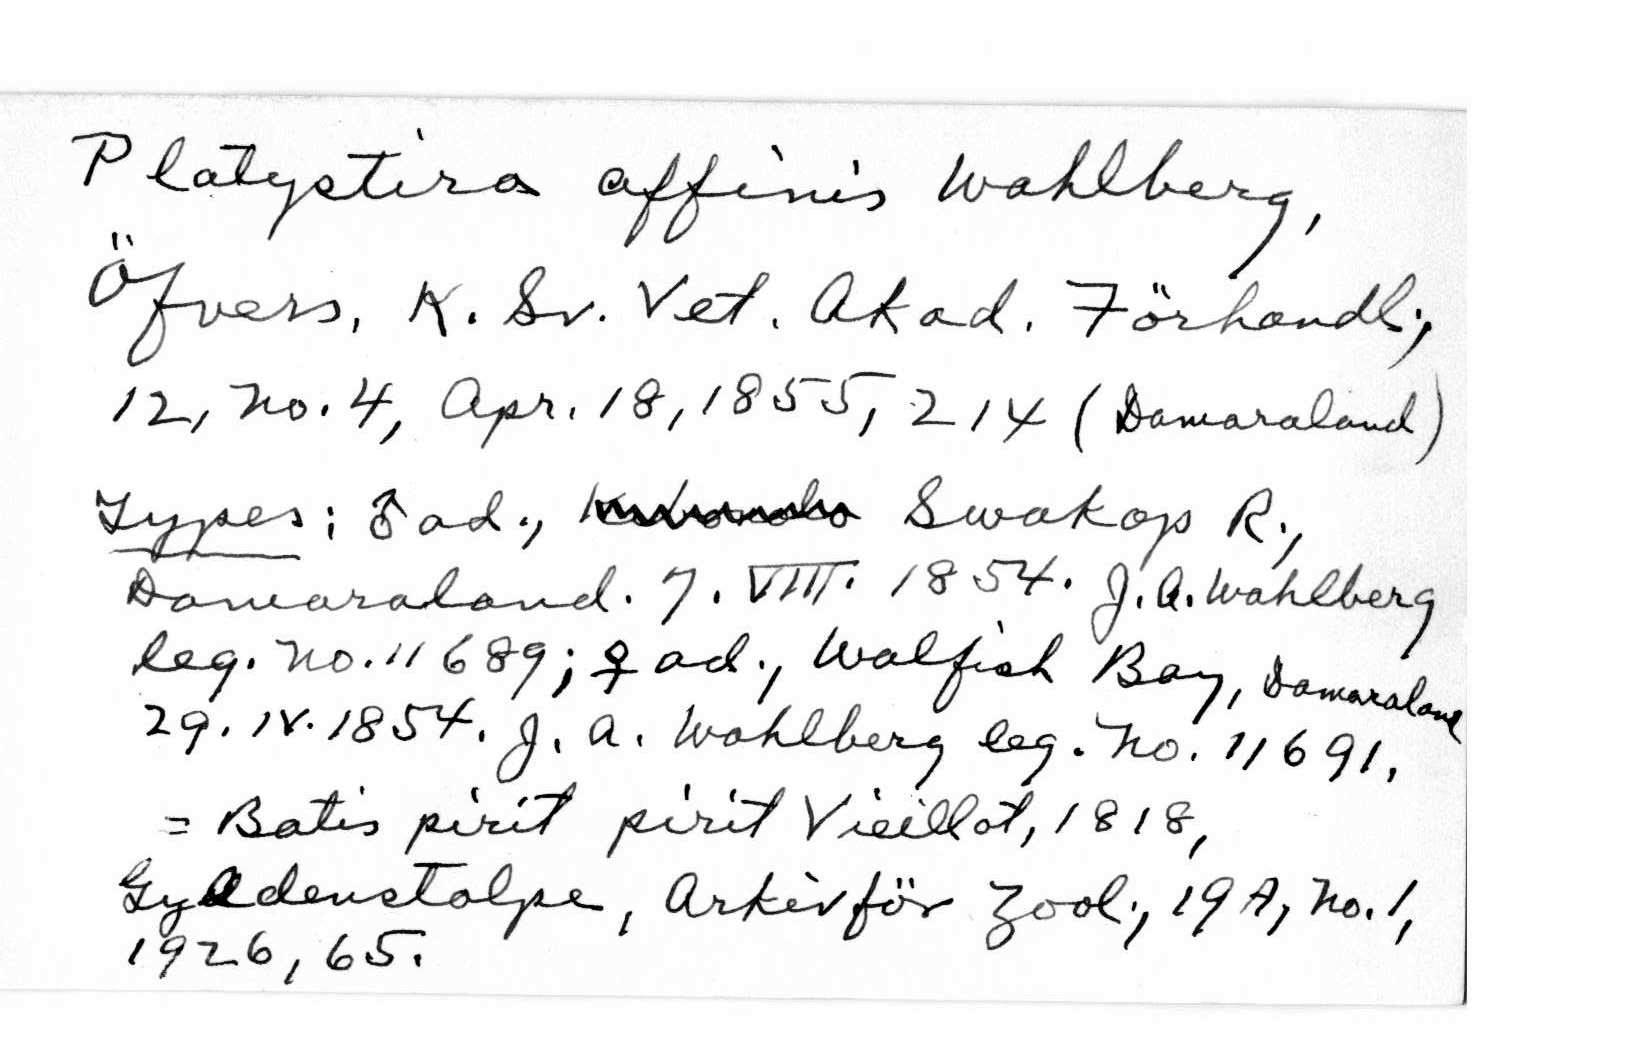 Platystira affinis Wahlberg,
Öfvers. K. Sv. Vet. Akad. Förhandl.,
12, No. 4, Apr. 18, 1855, 214 (Damaraland)
Types: ♂ ad., Swakop R.,
Damaraland. 7. VIII. 1854. J. A. Wahlberg
leg. No. 11689; ♀ ad., Walfish Bay, Damaraland
29. IV. 1854. J. A. Wahlberg leg. No. 11691.
= Batis pirit pirit Vieillot, 1818,
Gyldenstolpe, Arkiv för Zool., 19A, No. 1,
1926, 65.